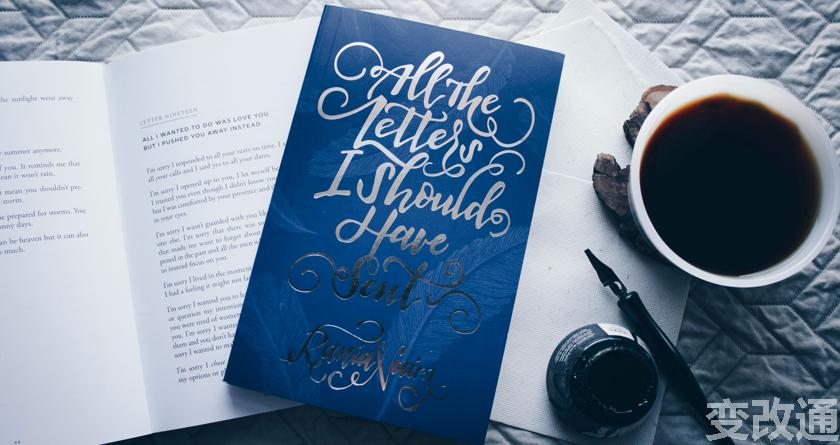 the sunlight went away
summer anymore.
of you. It reminds me that
ean it won't rain.
t mean you shouldn't pre-
storm.
be prepared for storms. You
nny days.
an be heaven but it can also
s much.
64
LETTER NINETEEN
ALL I WANTED TO DO WAS LOVE YOU
BUT I PUSHED YOU AWAY INSTEAD
I'm sorry I responded to all your texts on time. I
all your calls and I said yes to all your dates.
I'm sorry I opened up to you, I let myself be
I trusted you even though I didn't know you
but I was comforted by your presence and th
in your eyes.
I'm sorry I wasn't guarded with you like
one else. I'm sorry that there was so
that made me want to forget about
pened in the past and all the men w
to instead focus on you.
I'm sorry I lived in the moment
I had a feeling it might not las
I'm sorry I wanted you to h
or question my intention
you were tired of women
them and you don't ha
sorry I wanted to ma
I'm sorry I chose
my options or p
All the
Letters
I Should
Have
Sent
Rania Naim
变改通